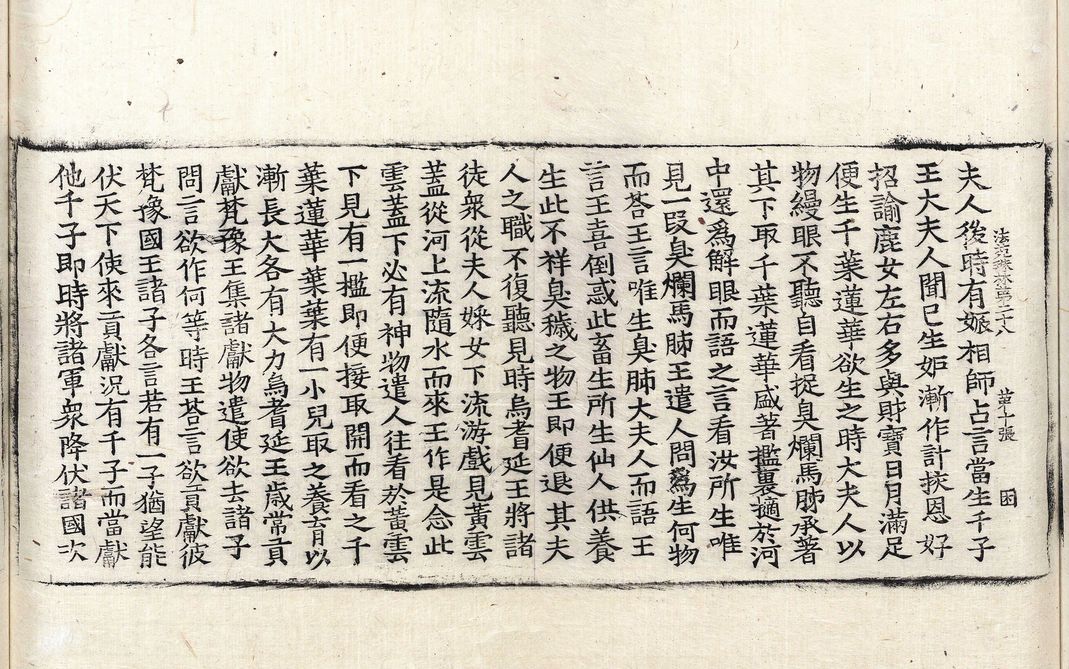 法苑珠林第二十八 第十張 困
夫人後時有娠相師占言當生千子
王大夫人聞已生妬漸作計挍恩好
招諭鹿女左右多與財寶日月滿足
便生千葉蓮華欲生之時大夫人以
物縵眼不聽自看捉臭爛馬肺承著
其下取千葉蓮華盛著檻裏擿於河
中還爲解眼而語之言看汝所生唯
見一段臭爛馬肺王遣人問爲生何物
而荅王言唯生臭肺大夫人而語王
言王喜倒惑此畜生所生仙人供養
生此不祥臭穢之物王即便退其夫
人之職不復聽見時烏耆延王將諸
徒衆從夫人婇女下流游戲見黃雲
蓋從河上流隨水而來王作是念此
雲蓋下必有神物遣人往看於黃雲
下見有一檻即便接取開而看之千
葉蓮華葉葉有一小兒取之養育以
漸長大各有大力烏耆延王歲常貢
獻梵豫王集諸獻物遣使欲去諸子
問言欲作何等時王荅言欲貢獻彼
梵豫國王諸子各言若有一子猶望能
伏天下使來貢獻況有千子而當獻
他千子即時將諸軍衆降伏諸國次